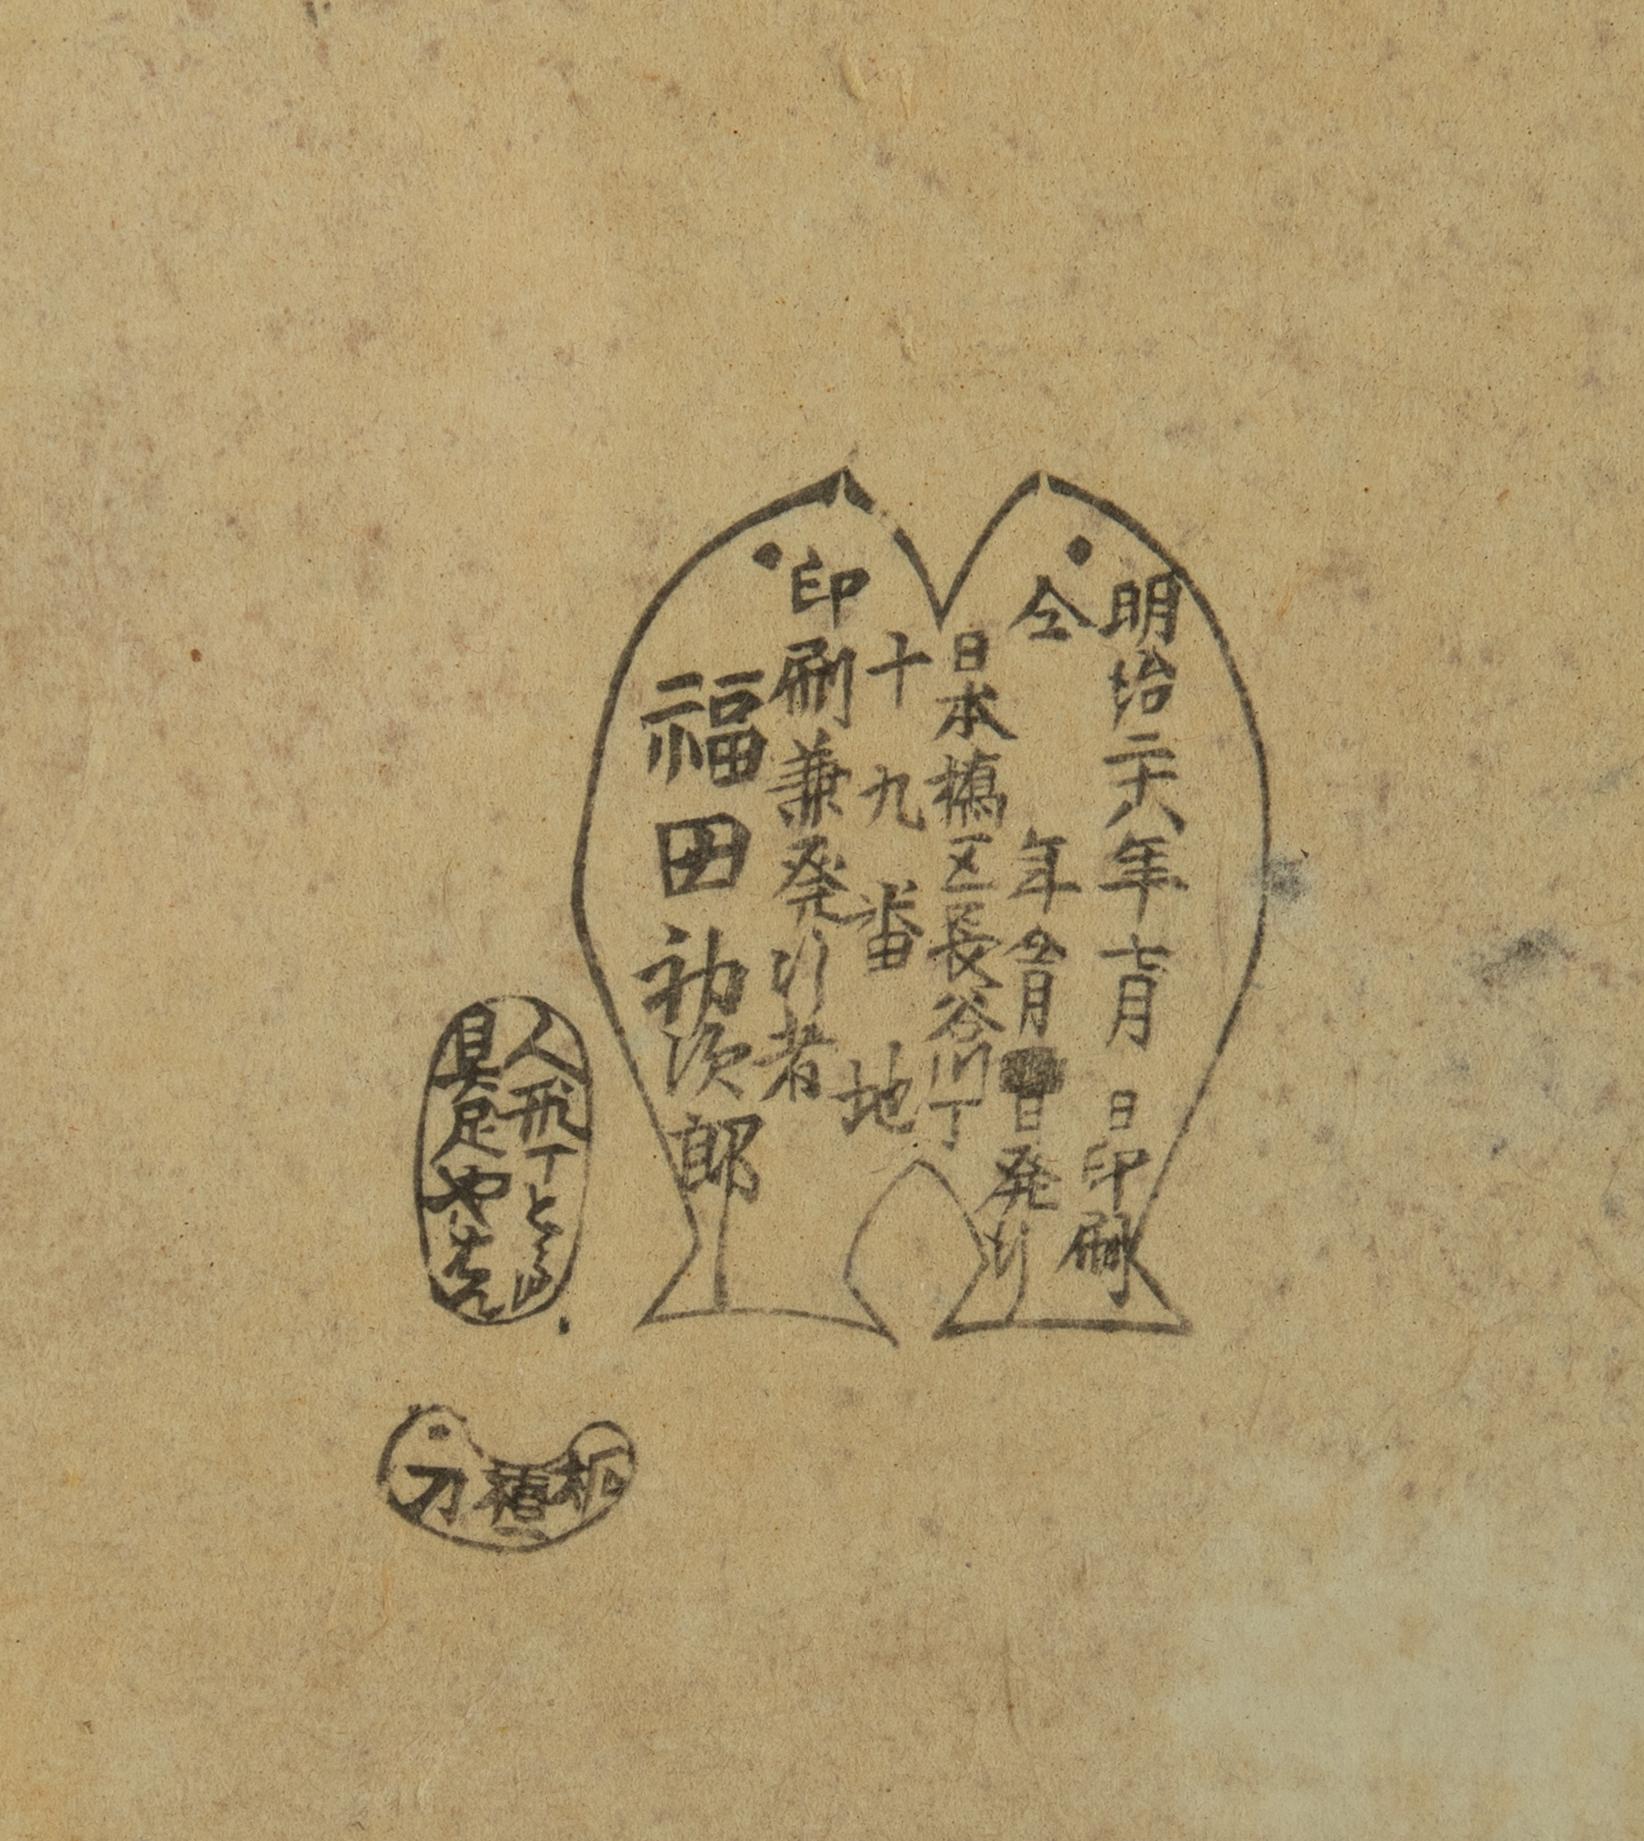 明治二十八年十一月　日印刷
仝　年仝月　日発行
日本橋区長谷川丁
十九番地
印刷兼発行者
福田初次郎
人形丁とをり
具足や